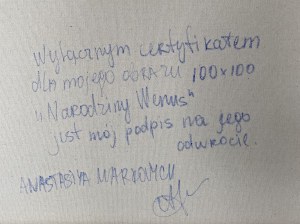 Wyłącznym certyfikatem
dla mojego obrazu 100x100
"Narodziny Wenus"
jest mój podpis na jego
odwrocie.
ANASTASIYA